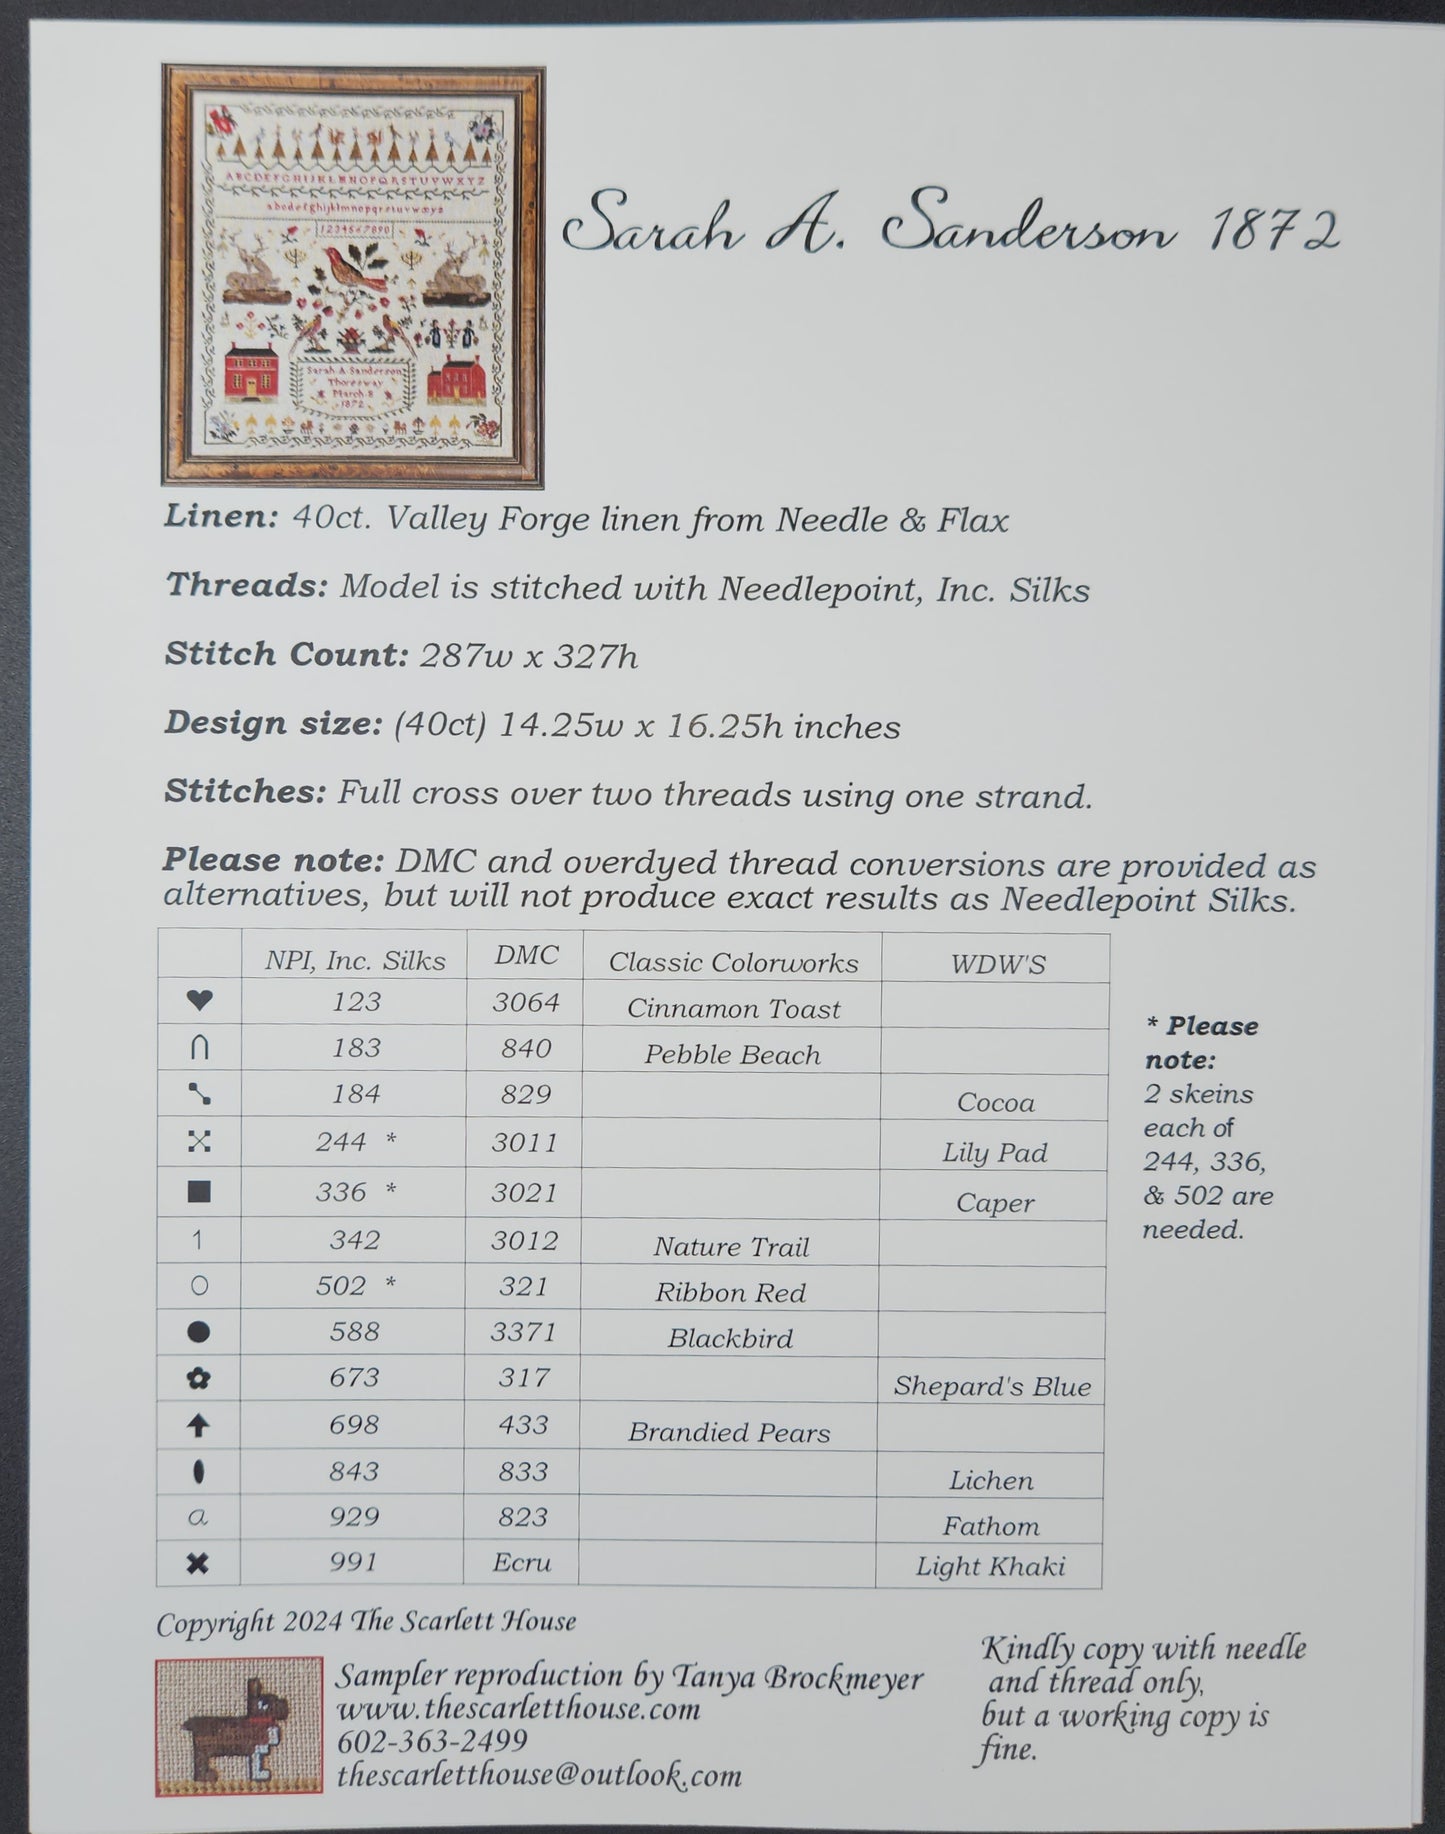 ABCDEFGHIJKLMNOPQRSTUVWXYZ
abcdefghijklmnopqrstuvwxyz
1234567890
Sarah A. Sanderson
Thoresway
March 8
1872
Sarah A. Sanderson 1872
Linen: 40ct. Valley Forge linen from Needle & Flax
Threads: Model is stitched with Needlepoint, Inc. Silks
Stitch Count: 287w x 327h
Design size: (40ct) 14.25w x 16.25h inches
Stitches: Full cross over two threads using one strand.
Please note: DMC and overdyed thread conversions are provided as
alternatives, but will not produce exact results as Needlepoint Silks.
NPI, Inc. Silks DMC Classic Colorworks WDW'S
123 3064 Cinnamon Toast
183 840 Pebble Beach
184 829 Cocoa
244 * 3011 Lily Pad
336 * 3021 Caper
1 342 3012 Nature Trail
502 * 321 Ribbon Red
588 3371 Blackbird
673 317 Shepard's Blue
698 433 Brandied Pears
843 833 Lichen
a 929 823 Fathom
991 Ecru Light Khaki
* Please
note:
2 skeins
each of
244, 336,
& 502 are
needed.
Copyright 2024 The Scarlett House
Sampler reproduction by Tanya Brockmeyer
www.thescarletthouse.com
602-363-2499
thescarletthouse@outlook.com
Kindly copy with needle
and thread only,
but a working copy is
fine.